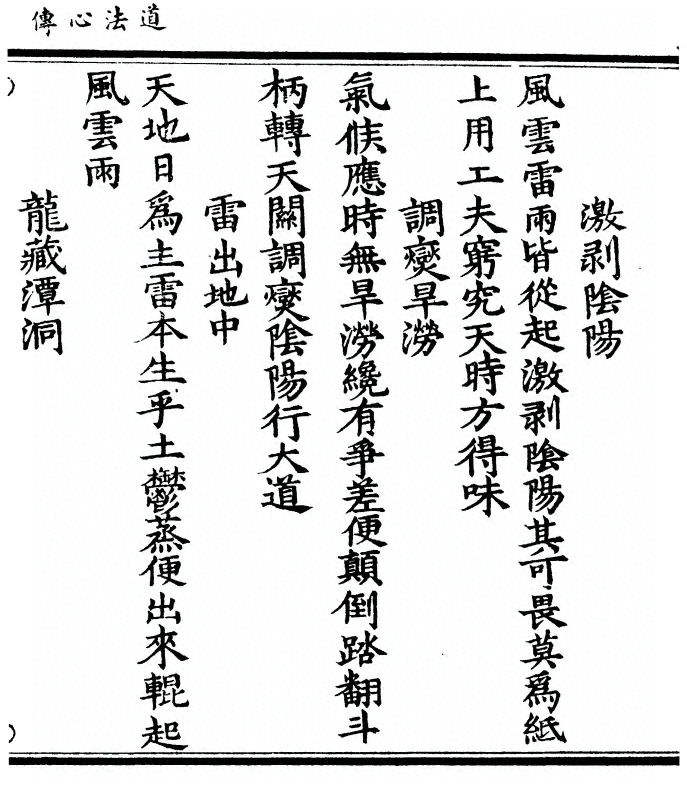 道法心傳
激剥陰陽
風雲雷雨皆從起激剥陰陽其可畏莫爲紙
上用工夫窮究天時方得味
調燮旱澇
氣候應時無旱澇纔有爭差便顛倒踏翻斗
柄轉天關調燮陰陽行大道
雷出地中
天地日爲主雷本生乎土鬱蒸便出來輥起
風雲雨
龍藏潭洞